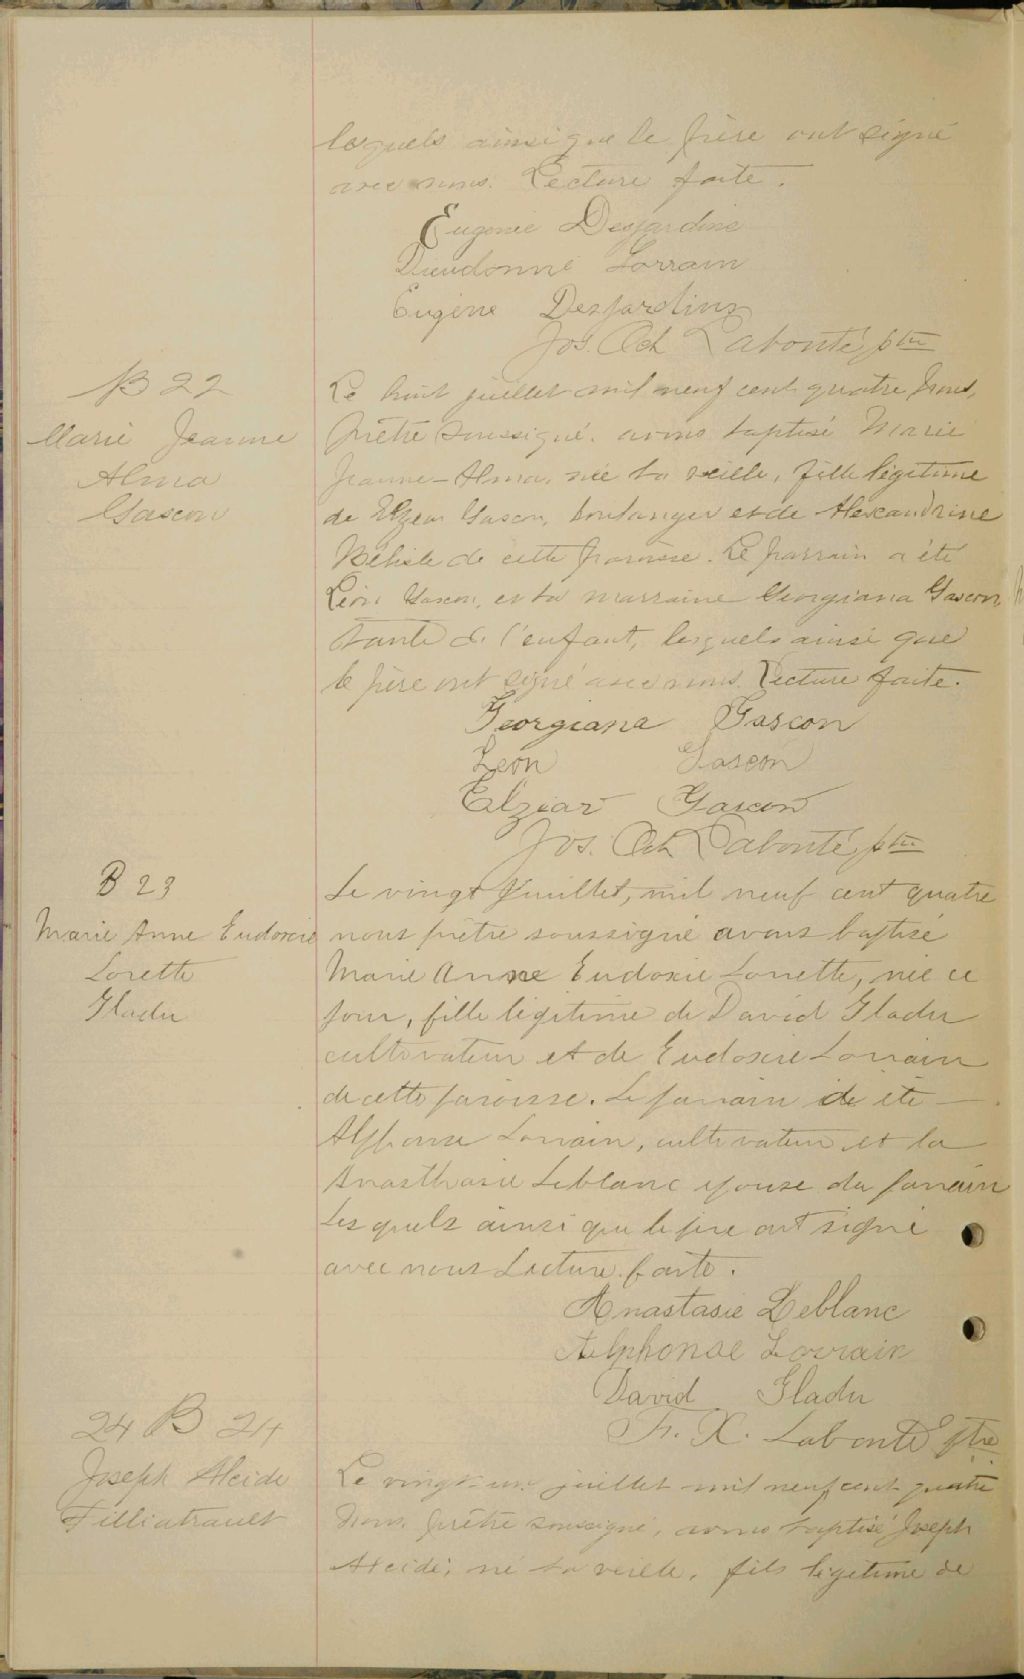 lesquels ainsi que le père ont signé
avec nous. Lecture faite.
Eugenie Desjardins
Dieudonné Lorrain
Eugène Desjardins
Jos. Oct Labonté ptre
B 22
Marie Jeanne
Alma
Gascon
Le huit juillet mil neuf cent quatre, nous,
prêtre soussigné, avons baptisé Marie
Jeanne-Alma, née la veille, fille légitime
de Elzéar Gascon, boulanger et de Alexandrine
Bélisle de cette paroisse. Le parrain a été
Léon Gascon, et la marraine Georgiana Gascon,
tante de l'enfant, lesquels ainsi que
le père ont signé avec nous. Lecture faite.
Georgiana Gascon
Leon Gascon
Elzéar Gascon
Jos. Oct Labonté, ptre
B 23
Marie Anne Eudoxie
Lorette
Gladu
Le vingt Juillet, mil neuf cent quatre
nous prêtre soussigné avons baptisé
Marie Anne Eudoxie Lorrette, née ce
jour, fille légitime de David Gladu
cultivateur et de Eudoxie Lorrain
de cette paroisse. Le parrain a été
Alphonse Lorrain, cultivateur et la
Anasthasie Leblanc épouse du parrain
Lesquels ainsi que le père ont signé
avec nous Lecture faite.
Anastasie Leblanc
Alphonse Lorrain
David Gladu
F. X. Labonté ptre
24 B 24
Joseph Alcide
Filliatrault
Le vingt-un juillet mil neuf cent quatre
nous, prêtre soussigné, avons baptisé Joseph
Alcide, né la veille, fils légitime de